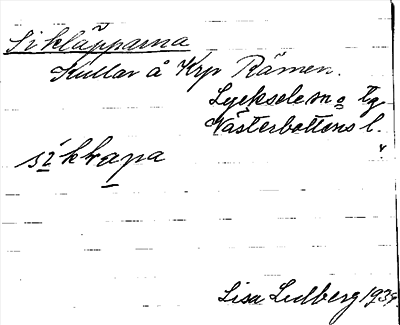 Sikläpparna
Kullar å Krp Rämen.
Lycksele sn o tg
Västerbottens l.
sikḷapa
Lisa Lidberg 1939.